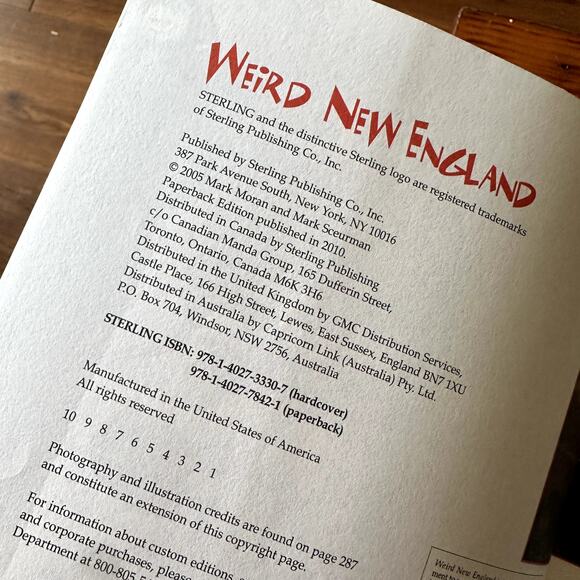 WEIRD NEW ENGLAND
STERLING and the distinctive Sterling logo are registered trademarks
of Sterling Publishing Co., Inc.
Published by Sterling Publishing Co., Inc.
387 Park Avenue South, New York, NY 10016
© 2005 Mark Moran and Mark Sceurman
Paperback Edition published in 2010.
Distributed in Canada by Sterling Publishing
c/o Canadian Manda Group, 165 Dufferin Street,
Toronto, Ontario, Canada M6K 3H6
Distributed in the United Kingdom by GMC Distribution Services,
Castle Place, 166 High Street, Lewes, East Sussex, England BN7 1XU
Distributed in Australia by Capricorn Link (Australia) Pty. Ltd.
P.O. Box 704, Windsor, NSW 2756, Australia
STERLING ISBN: 978-1-4027-3330-7 (hardcover)
978-1-4027-7842-1 (paperback)
Manufactured in the United States of America
All rights reserved
10 9 8 7 6 5 4 3 2 1
Photography and illustration credits are found on page 287
and constitute an extension of this copyright page.
For information about custom editions,
and corporate purchases, please
Department at 800-805-5
Weird New England
ment to